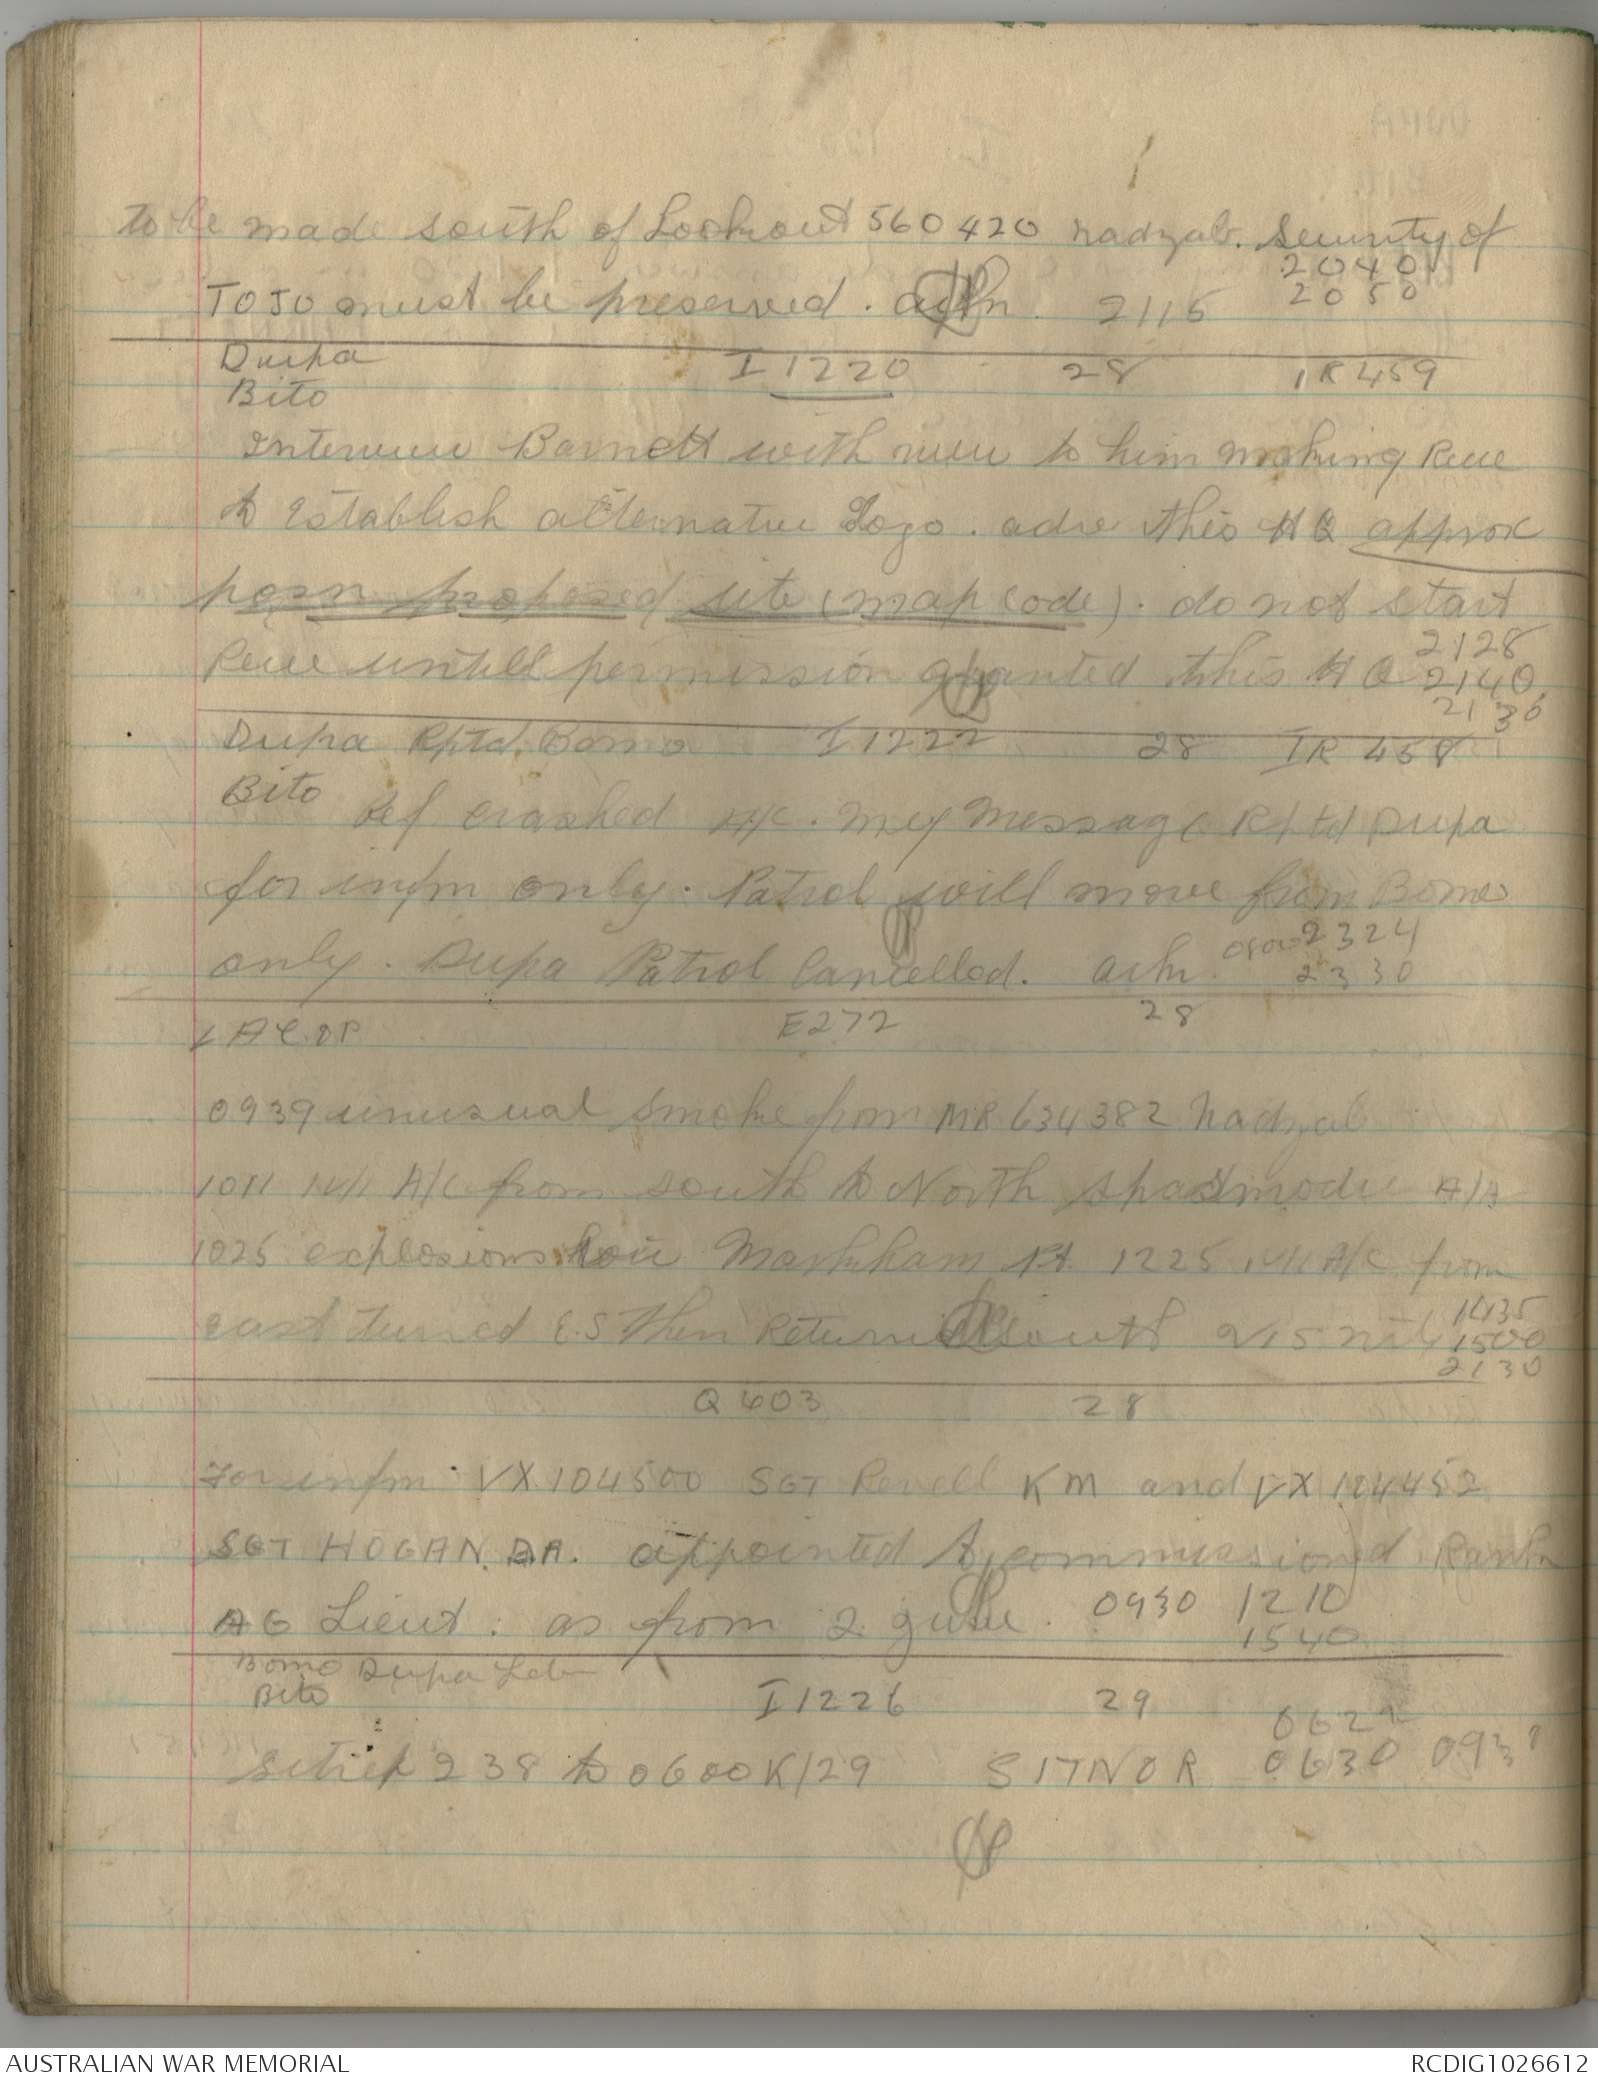 to be made south of Lookout 560420 nadzab. Security of
2040
TOJO must be preserved. ackn. 2115 2050
Dupa I 1220 28 IR 459
Bito
Interview Barnett with view to him making Recce
to Establish alternative Logo. adve this HQ approx
posn proposed site (map code). do not start
2128
Recce untill permission granted this HQ 2140
2136
Dupa Rptd. Bomo I 1222 28 IR 458
Bito
Ref crashed A/C. my message Rptd Dupa
for infm only. Patrol will move from Bomo
2324
only. Dupa Patrol Cancelled. ackn. 2330
LAE OP E272 28
0939 unusual smoke from MR 634382 Nadzab
1011 A/C from south to North spasmodic A/A
1025 explosions Markham Pt. 1225 A/C from
1435
east turned E.S then Returned south 215 nil 1500
2130
Q 403 28
For infm. VX104500 SGT Revell KM and VX104452
SGT HOGAN. appointed to commissioned Rank
AG Lieut. as from 2 0930 1210
1540
Bomo Dupa
Bito I 1226 29
0622
Sitrep 238 to 0600K/29 SITNOR 0630
AUSTRALIAN WAR MEMORIAL RCDIG1026612